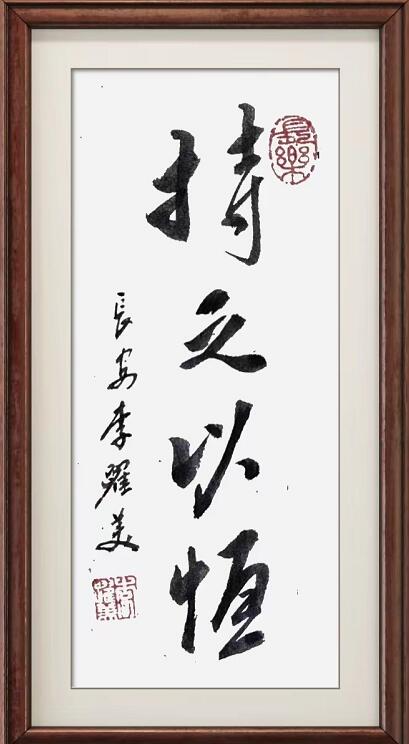 持之以恒
長安李耀美
長樂